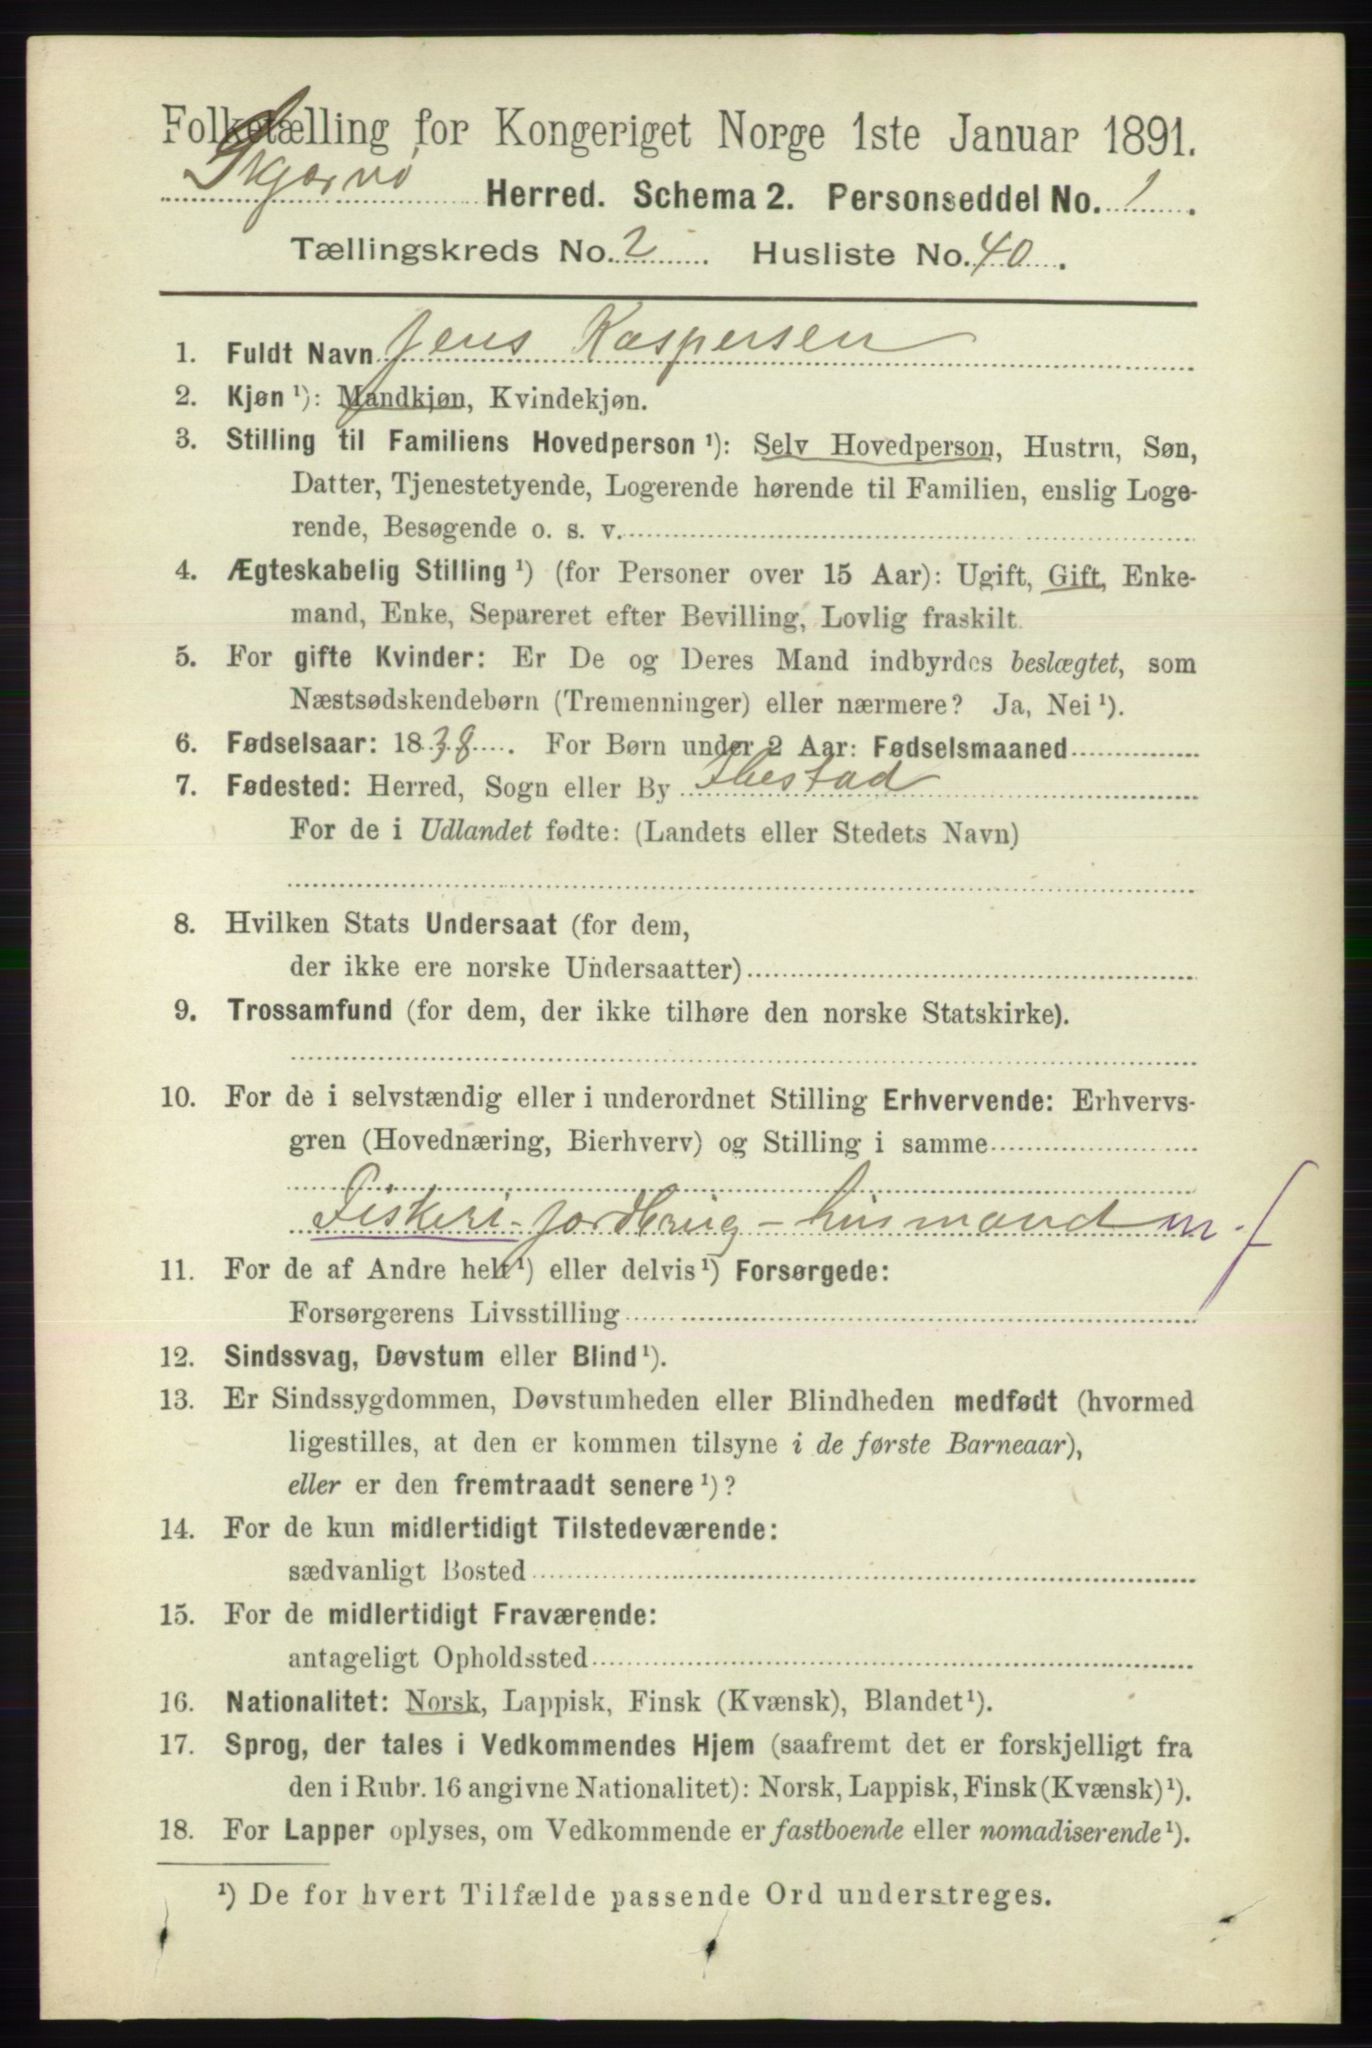 Folketælling for Kongeriget Norge 1ste Januar 1891.
Skjærvø Herred. Schema 2. Personseddel No. 1.
Tællingskreds No. 2. Husliste No. 40.
1. Fuldt Navn Jens Kaspersen
2. Kjøn ¹): Mandkjøn, Kvindekjøn.
3. Stilling til Familiens Hovedperson ¹): Selv Hovedperson, Hustru, Søn,
Datter, Tjenestetyende, Logerende hørende til Familien, enslig Loge-
rende, Besøgende o. s. v.
4. Ægteskabelig Stilling ¹) (for Personer over 15 Aar): Ugift, Gift, Enke-
mand, Enke, Separeret efter Bevilling, Lovlig fraskilt.
5. For gifte Kvinder: Er De og Deres Mand indbyrdes beslægtet, som
Næstsødskendebørn (Tremenninger) eller nærmere? Ja, Nei ¹).
6. Fødselsaar: 1838. For Børn under 2 Aar: Fødselsmaaned
7. Fødested: Herred, Sogn eller By Ibestad
For de i Udlandet fødte: (Landets eller Stedets Navn)
8. Hvilken Stats Undersaat (for dem,
der ikke ere norske Undersaatter)
9. Trossamfund (for dem, der ikke tilhøre den norske Statskirke).
10. For de i selvstændig eller i underordnet Stilling Erhvervende: Erhvervs-
gren (Hovednæring, Bierhverv) og Stilling i samme
Fiskeri - jordbrug - husmand m. f
11. For de af Andre helt ¹) eller delvis ¹) Forsørgede:
Forsørgerens Livsstilling
12. Sindssvag, Døvstum eller Blind ¹).
13. Er Sindssygdommen, Døvstumheden eller Blindheden medfødt (hvormed
ligestilles, at den er kommen tilsyne i de første Barneaar),
eller er den fremtraadt senere ¹)?
14. For de kun midlertidigt Tilstedeværende:
sædvanligt Bosted
15. For de midlertidigt Fraværende:
antageligt Opholdssted
16. Nationalitet: Norsk, Lappisk, Finsk (Kvænsk), Blandet ¹).
17. Sprog, der tales i Vedkommendes Hjem (saafremt det er forskjelligt fra
den i Rubr. 16 angivne Nationalitet): Norsk, Lappisk, Finsk (Kvænsk) ¹).
18. For Lapper oplyses, om Vedkommende er fastboende eller nomadiserende ¹).
¹) De for hvert Tilfælde passende Ord understreges.